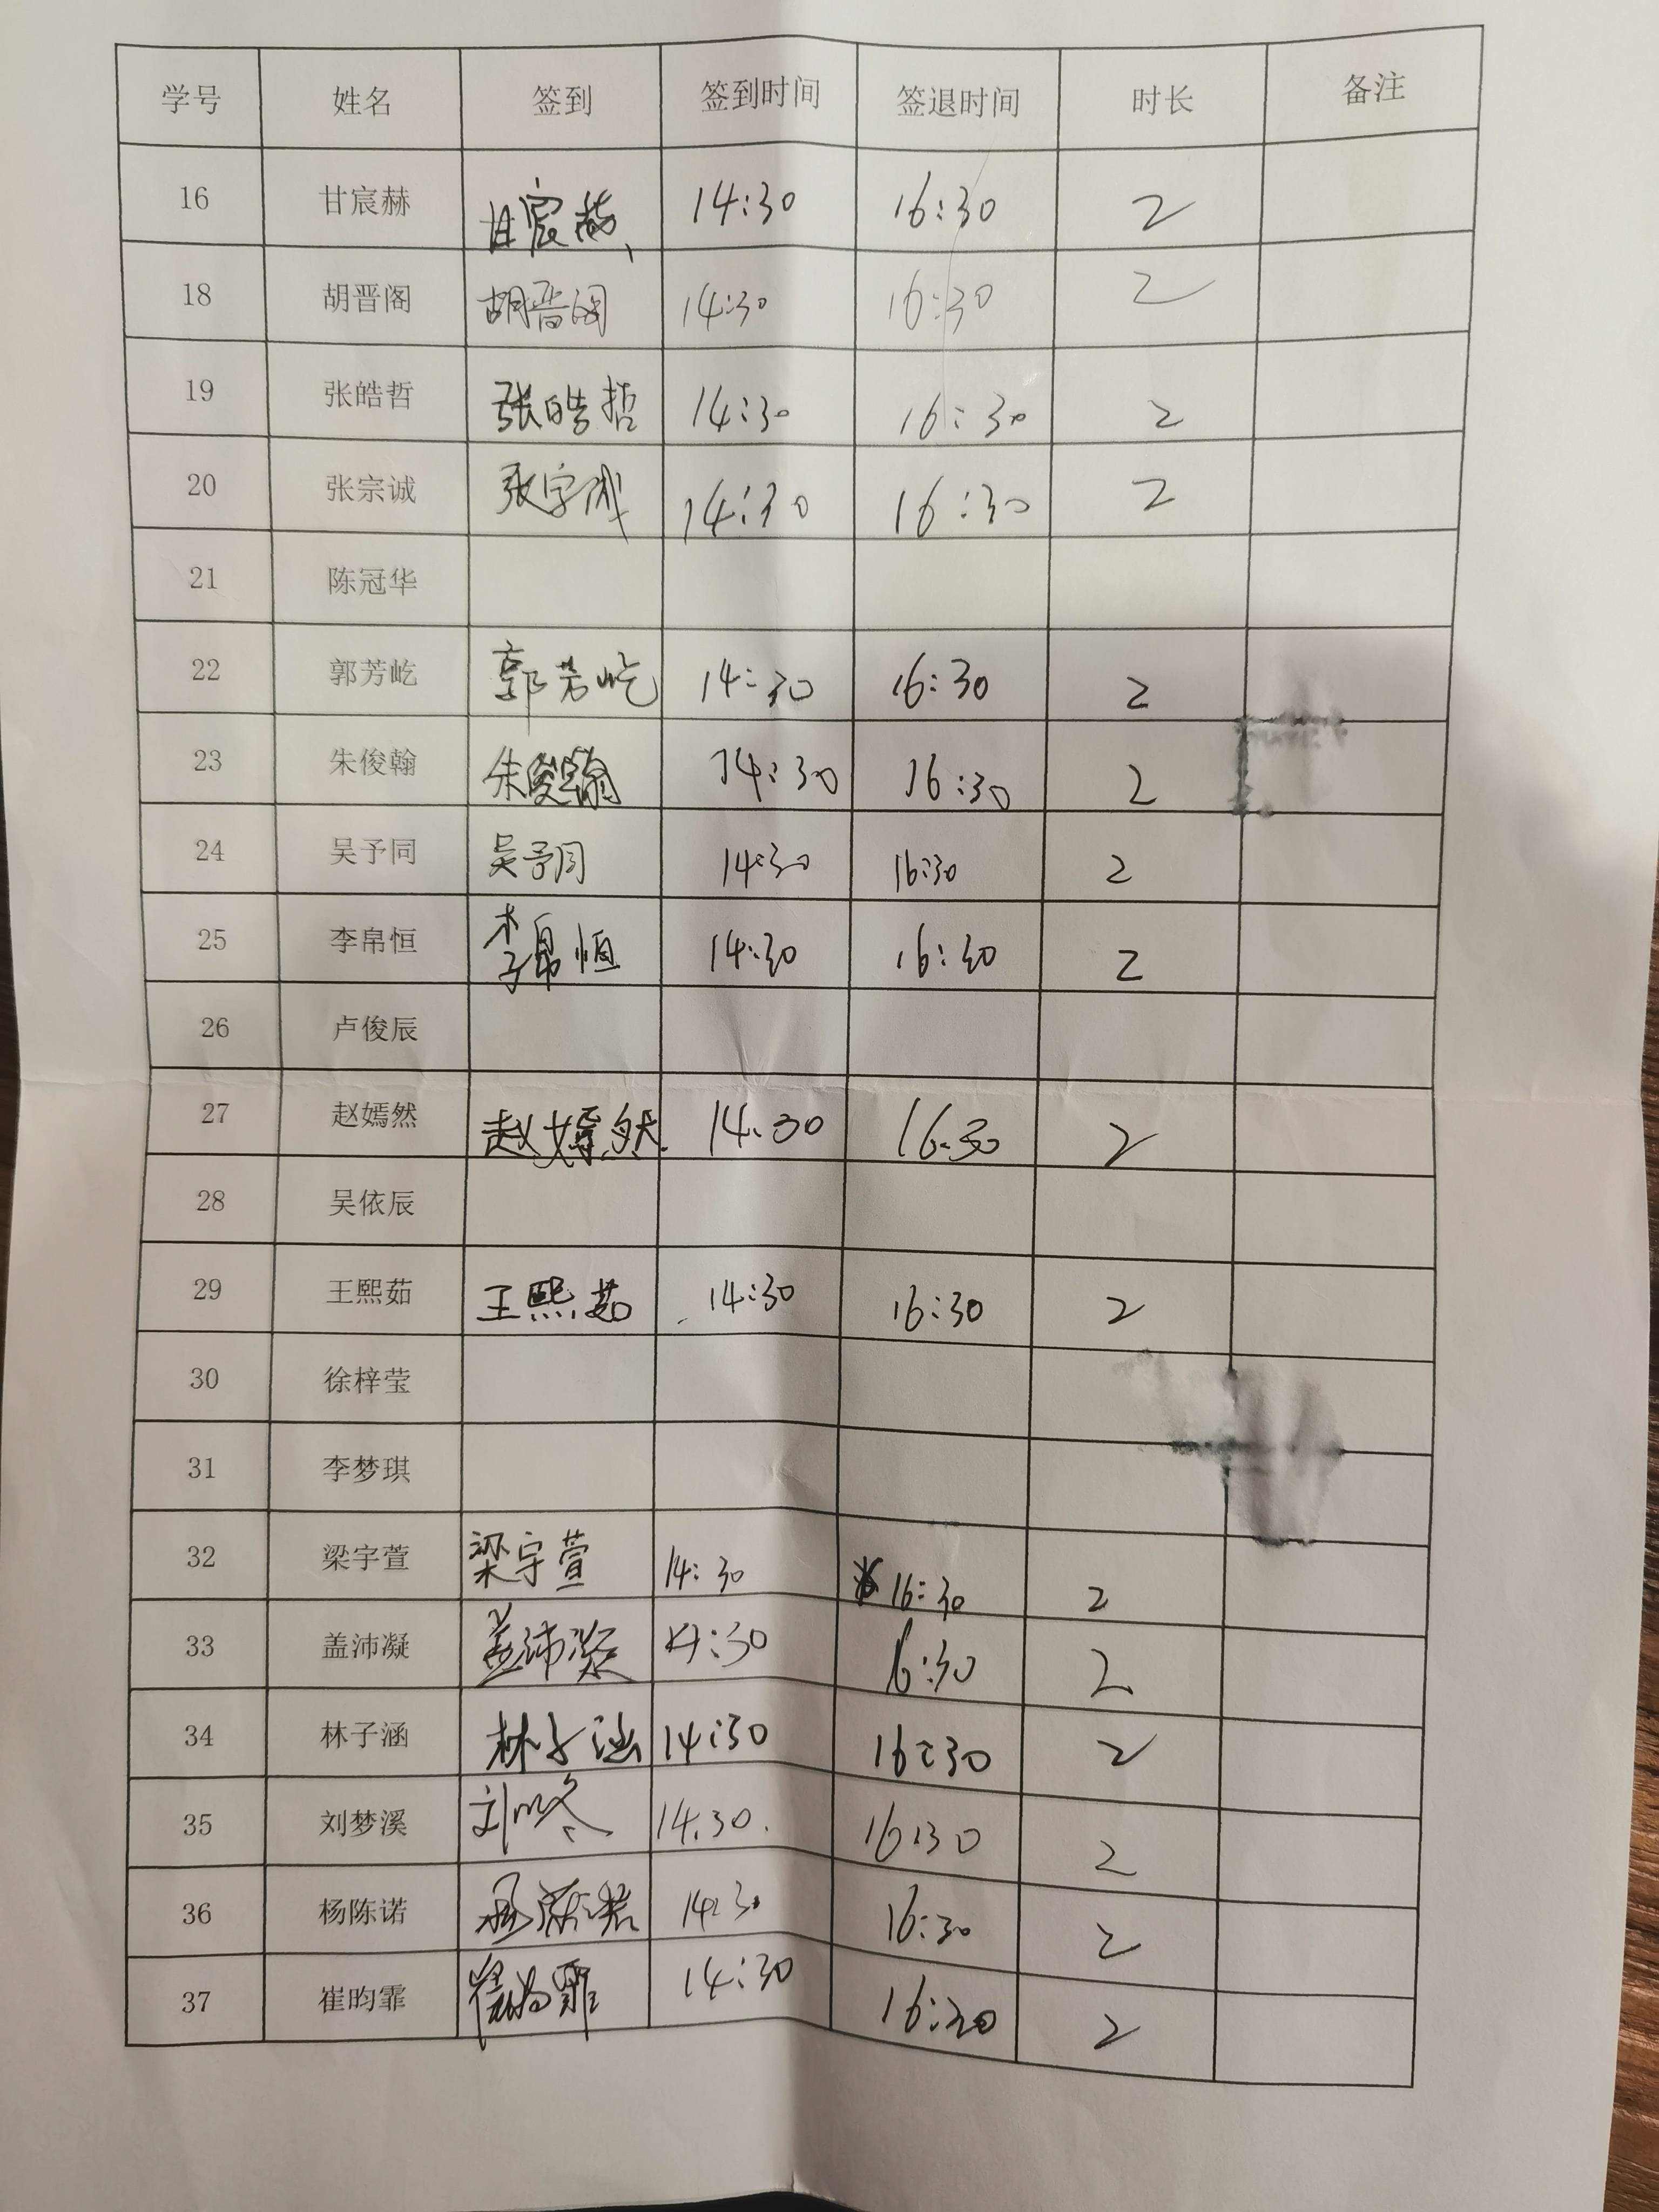 学号 姓名 签到 签到时间 签退时间 时长 备注
16 甘宸赫 甘宸赫 14:30 16:30 2
18 胡晋阁 胡晋阁 14:30 16:30 2
19 张皓哲 张皓哲 14:30 16:30 2
20 张宗诚 张宗诚 14:30 16:30 2
21 陈冠华
22 郭芳屹 郭芳屹 14:30 16:30 2
23 朱俊翰 朱俊翰 14:30 16:30 2
24 吴予同 吴予同 14:30 16:30 2
25 李帛恒 李帛恒 14:30 16:30 2
26 卢俊辰
27 赵嫣然 赵嫣然 14:30 16:30 2
28 吴依辰
29 王熙茹 王熙茹 14:30 16:30 2
30 徐梓莹
31 李梦琪
32 梁宇萱 梁宇萱 14:30 16:30 2
33 盖沛凝 盖沛凝 14:30 16:30 2
34 林子涵 林子涵 14:30 16:30 2
35 刘梦溪 14:30. 16:30 2
36 杨陈诺 14:30 16:30 2
37 崔昀霏 崔昀霏 14:30 16:30 2